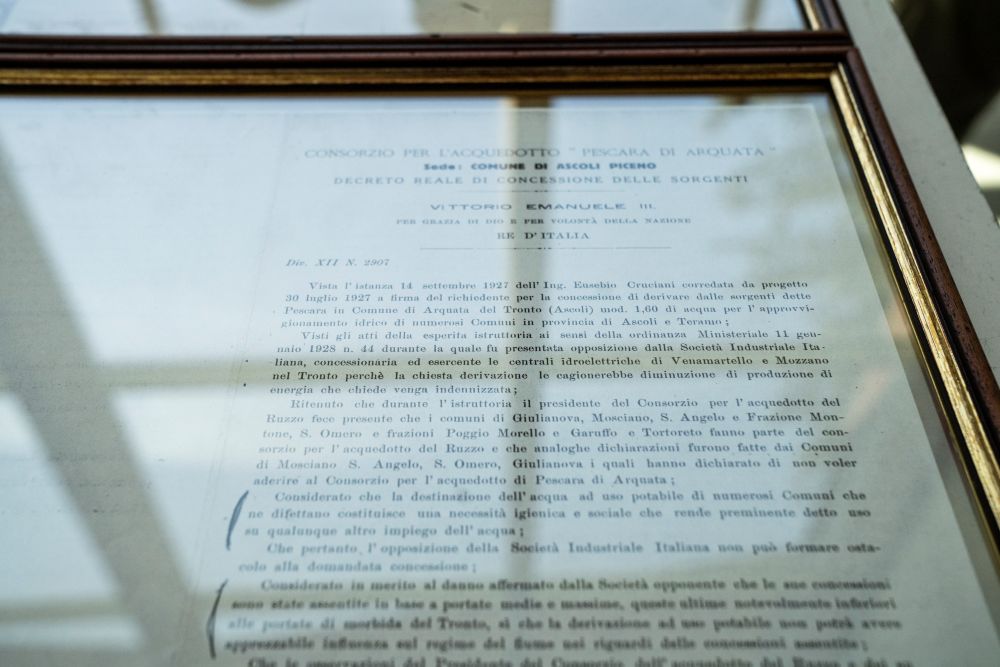 CONSORZIO PER L'ACQUEDOTTO "PESCARA DI ARQUATA"
Sede: COMUNE DI ASCOLI PICENO
DECRETO REALE DI CONCESSIONE DELLE SORGENTI
VITTORIO EMANUELE III.
PER GRAZIA DI DIO E PER VOLONTÀ DELLA NAZIONE
RE D'ITALIA
Div. XII N. 2907
Vista l'istanza 14 settembre 1927 dell'Ing. Eusebio Cruciani corredata da progetto
30 luglio 1927 a firma del richiedente per la concessione di derivare dalle sorgenti dette
Pescara in Comune di Arquata del Tronto (Ascoli) mod. 1,60 di acqua per l'approvvi-
gionamento idrico di numerosi Comuni in provincia di Ascoli e Teramo;
Visti gli atti della esperita istruttoria ai sensi della ordinanza Ministeriale 11 gen-
naio 1928 n. 44 durante la quale fu presentata opposizione dalla Società Industriale Ita-
liana, concessionaria ed esercente le centrali idroelettriche di Venamartello e Mozzano
nel Tronto perchè la chiesta derivazione le cagionerebbe diminuzione di produzione di
energia che chiede venga indennizzata;
Ritenuto che durante l'istruttoria il presidente del Consorzio per l'acquedotto del
Ruzzo fece presente che i comuni di Giulianova, Mosciano, S. Angelo e Frazione Mon-
tone, S. Omero e frazioni Poggio Morello e Garuffo e Tortoreto fanno parte del con-
sorzio per l'acquedotto del Ruzzo e che analoghe dichiarazioni furono fatte dai Comuni
di Mosciano S. Angelo, S. Omero, Giulianova i quali hanno dichiarato di non voler
aderire al Consorzio per l'acquedotto di Pescara di Arquata;
Considerato che la destinazione dell'acqua ad uso potabile di numerosi Comuni che
ne difettano costituisce una necessità igienica e sociale che rende preminente detto uso
su qualunque altro impiego dell'acqua;
Che pertanto, l'opposizione della Società Industriale Italiana non può formare osta-
colo alla domandata concessione;
Considerato in merito al danno affermato dalla Società opponente che le sue concessioni
sono state assentite in base a portate medie e massime, queste ultime notevolmente inferiori
alle portate di morbida del Tronto, sì che la derivazione ad uso potabile non potrà avere
apprezzabile influenza sul regime del fiume nei riguardi delle concessioni assentite;
Che le osservazioni del Presidente del Consorzio dell'acquedotto del